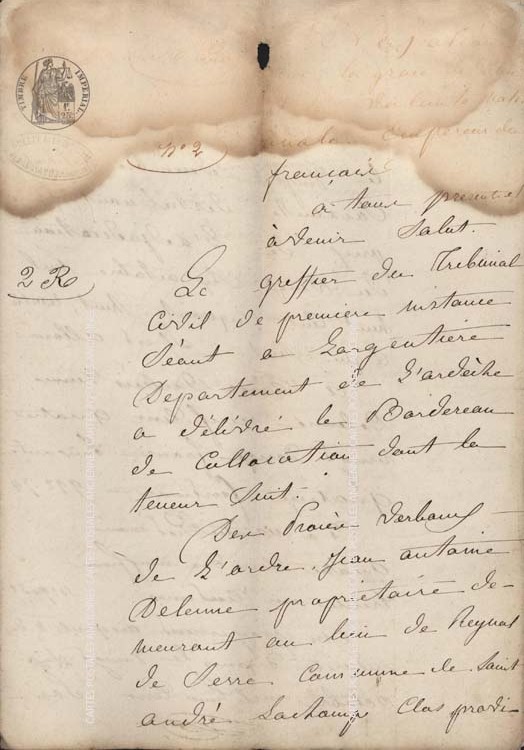 TIMBRE IMPERIAL
la grace
volonté
nationale Empereur des
n° 2
français
a tous presents et
à venir Salut.
2 R
Le greffier du Tribunal
Civil de première instance
Séant a Largentière
Departement de L'ardèche
a délivré le Bordereau
de Collocation dont la
teneur Suit.
Des Procès verbaux
de L'ordre, Jean antoine
Delenne propriétaire de-
meurant au lieu de Reynas
de Serre Commune de Saint
andré Lachamp Clos provi